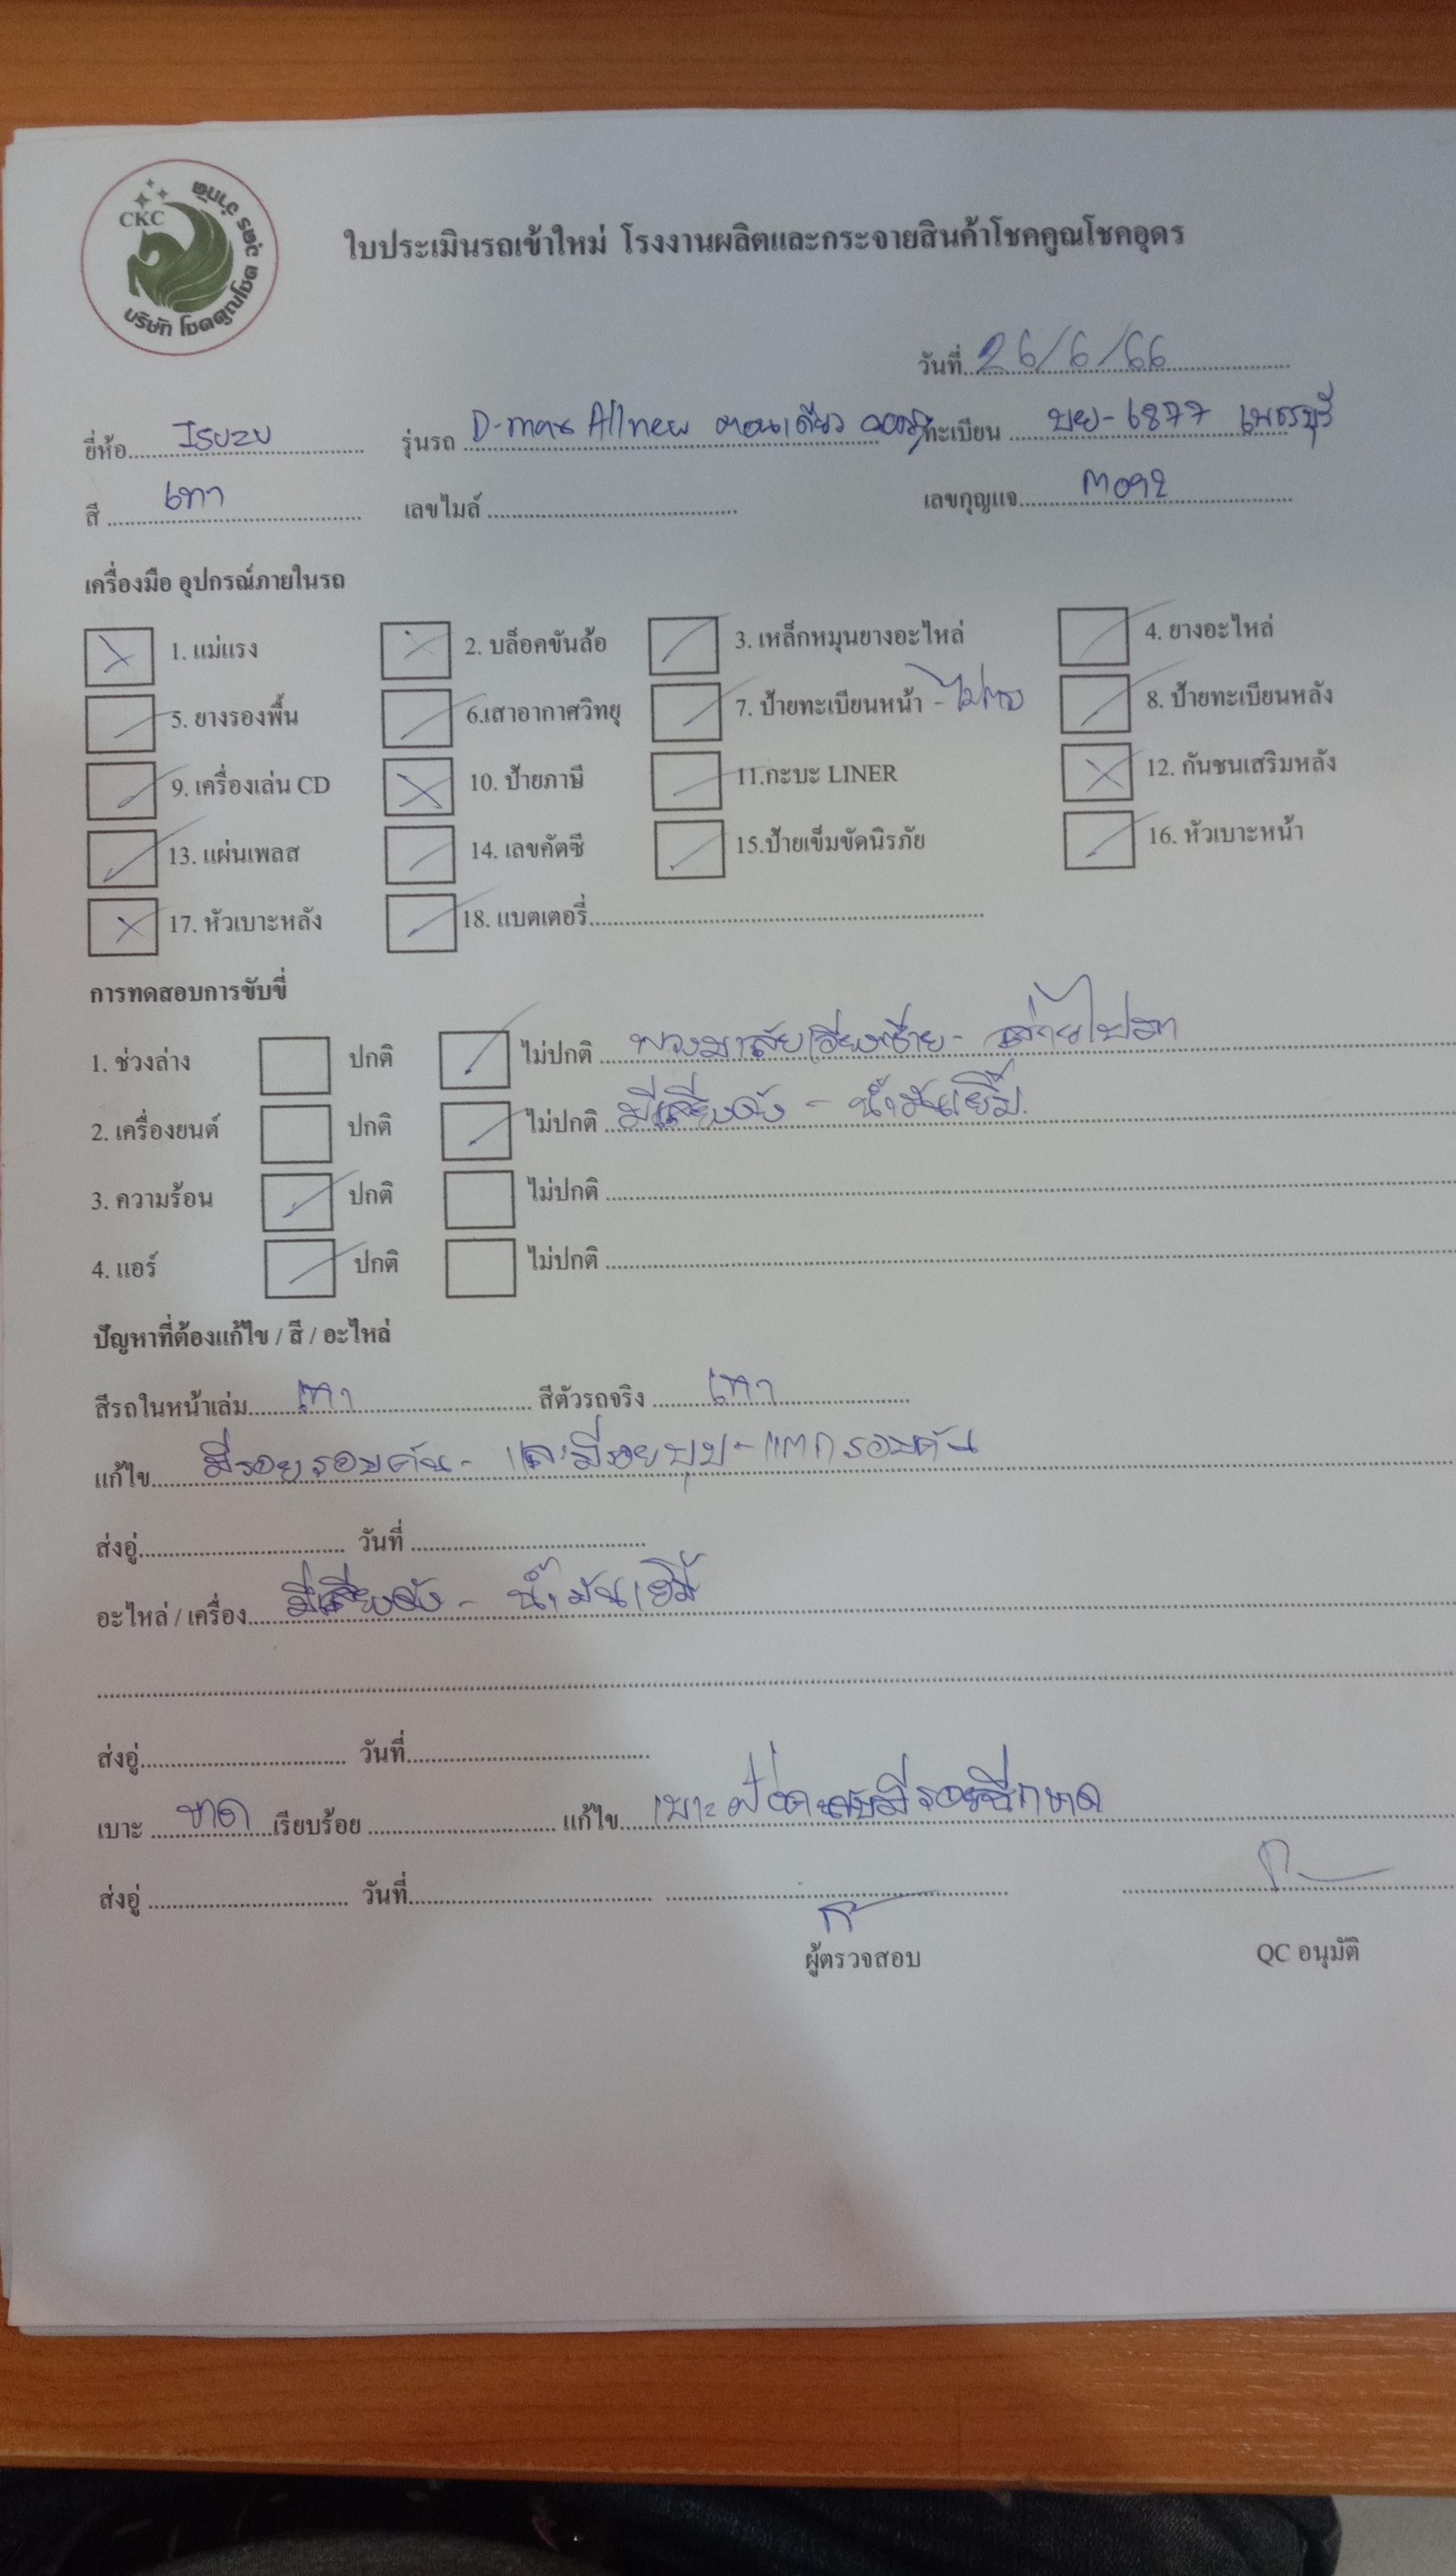 CKC
บริษัท โชคคูณโชค วัตร จำกัด
ใบประเมินรถเข้าใหม่ โรงงานผลิตและกระจายสินค้าโชคคูณโชคอุดร
วันที่ 26/6/66
ยี่ห้อ Isuzu รุ่นรถ D-max Allnew ตอนเดียว ทะเบียน บย-6877 เพชรบุรี
สี เทา เลขไมล์ เลขกุญแจ M092
เครื่องมือ อุปกรณ์ภายในรถ
1. แม่แรง 2. บล็อคขันล้อ 3. เหล็กหมุนยางอะไหล่ 4. ยางอะไหล่
5. ยางรองพื้น 6.เสาอากาศวิทยุ 7. ป้ายทะเบียนหน้า 8. ป้ายทะเบียนหลัง
9. เครื่องเล่น CD 10. ป้ายภาษี 11.กะบะ LINER 12. กันชนเสริมหลัง
13. แผ่นเพลส 14. เลขคัตซี 15.ป้ายเข็มขัดนิรภัย 16. หัวเบาะหน้า
17. หัวเบาะหลัง 18. แบตเตอรี่
การทดสอบการขับขี่
1. ช่วงล่าง ปกติ ไม่ปกติ พวงมาลัยเอียงซ้าย -
2. เครื่องยนต์ ปกติ ไม่ปกติ มีเสียงดัง - น้ำมันเยิ้ม
3. ความร้อน ปกติ ไม่ปกติ
4. แอร์ ปกติ ไม่ปกติ
ปัญหาที่ต้องแก้ไข / สี / อะไหล่
สีรถในหน้าเล่ม เทา สีตัวรถจริง เทา
แก้ไข มีรอยรอบคัน - และมีรอยบุบ - แตกรอบคัน
ส่งอู่ วันที่
อะไหล่ / เครื่อง มีเสียงดัง - น้ำมันเยิ้
ส่งอู่ วันที่
เบาะ ขาด เรียบร้อย แก้ไข เบาะ มีรอยฉีกขาด
ส่งอู่ วันที่
ผู้ตรวจสอบ QC อนุมัติ